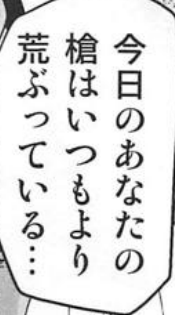 今日のあなたの
槍はいつもより
荒ぶっている…